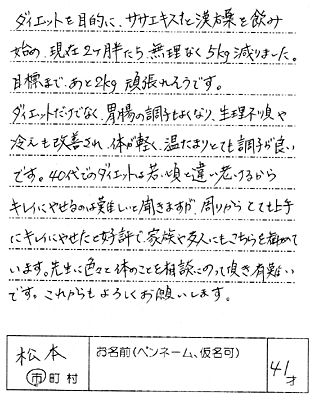 ダイエットを目的に、ササエキスと漢方薬を飲み
始め、現在2ヶ月半たち、無理なく5kg減りました。
目標まで、あと2kg 頑張れそうです。
ダイエットだけでなく、胃腸の調子もよくなり、生理不順や
冷えも改善され、体が軽く、温たまりとても調子が良い
です。40代でのダイエットは若い頃と違い老けるから
キレイにやせるのは難しいと聞きますが、周りから とても上手
にキレイにやせたと好評で、家族や友人にもこちらを勧めて
います。先生に色々と体のことを相談にのって頂き有難い
です。これからもよろしくお願いします。
松本
市町村
お名前(ペンネーム、仮名可)
41才